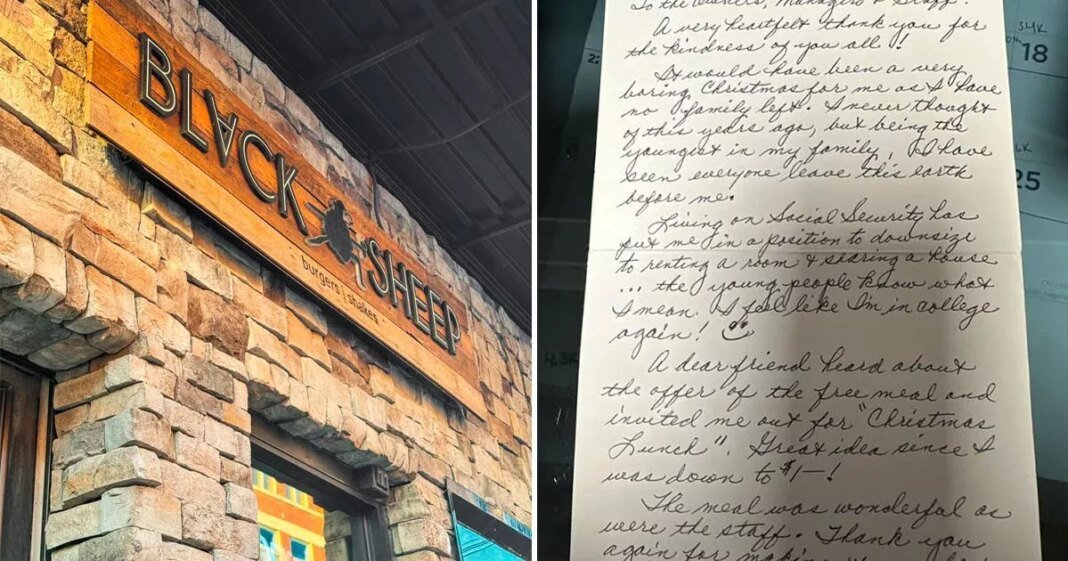 BLACK SHEEP
burgers | shakes
To the Owners, Managers & Staff:
A very heartfelt thank you for
the kindness of you all!
It would have been a very
boring Christmas for me as I have
no family left. I never thought
of this years ago, but being the
youngest in my family, I have
seen everyone leave this earth
before me.
Living on Social Security has
put me in a position to downsize
to renting a room & sharing a house
... the young people know what
I mean. I feel like I'm in college
again!
A dear friend heard about
the offer of the free meal and
invited me out for "Christmas
Lunch". Great idea since I
was down to $1—!
The meal was wonderful as
were the staff. Thank you
again for making
34K
18
25
4.3K